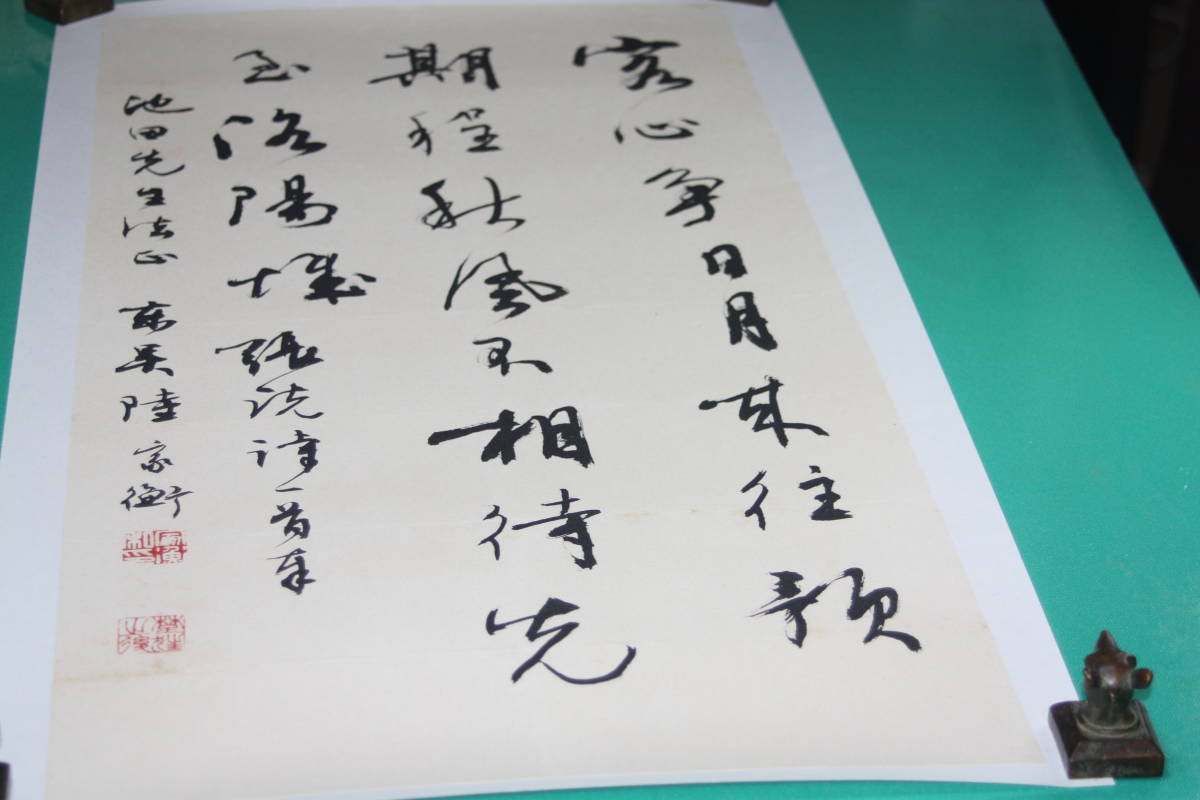 客心争日月来往預
期程秋風不相待先
至洛陽城張説詩一首奉
池田先生法正 東吴陸家衡